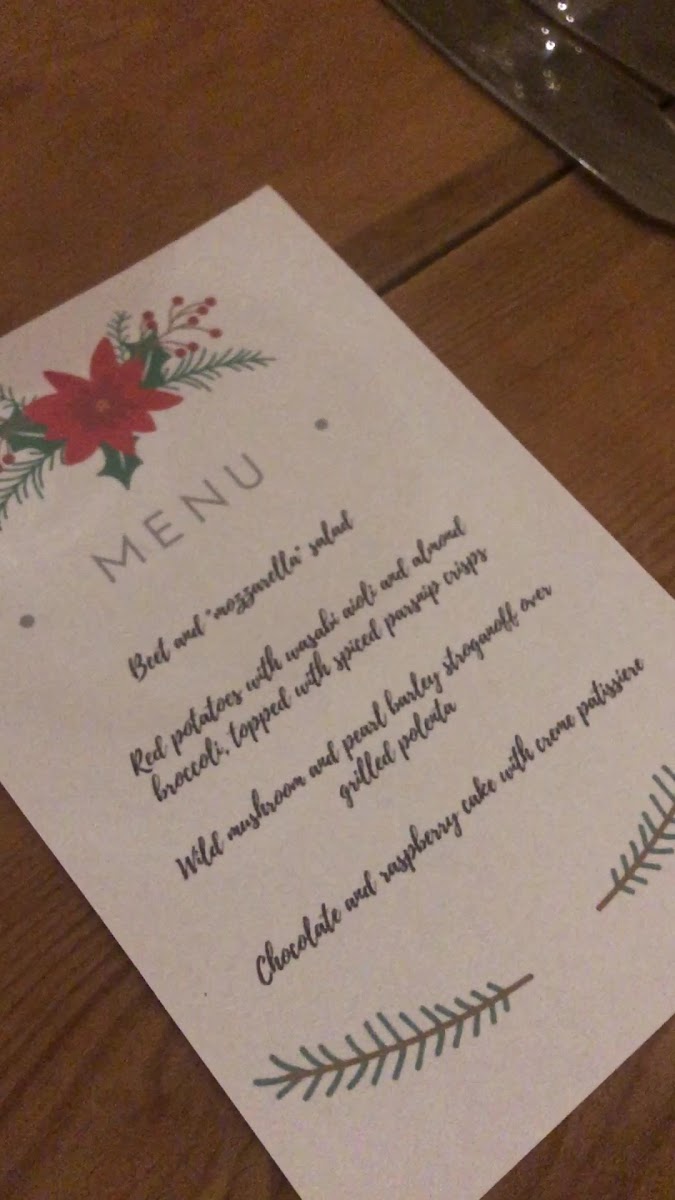 MENU
Beet and "mozzarella" salad
Red potatoes with wasabi aioli and almond
broccoli, topped with spiced parsnip crisps
Wild mushroom and pearl barley stroganoff over
grilled polenta
Chocolate and raspberry cake with creme patissiere